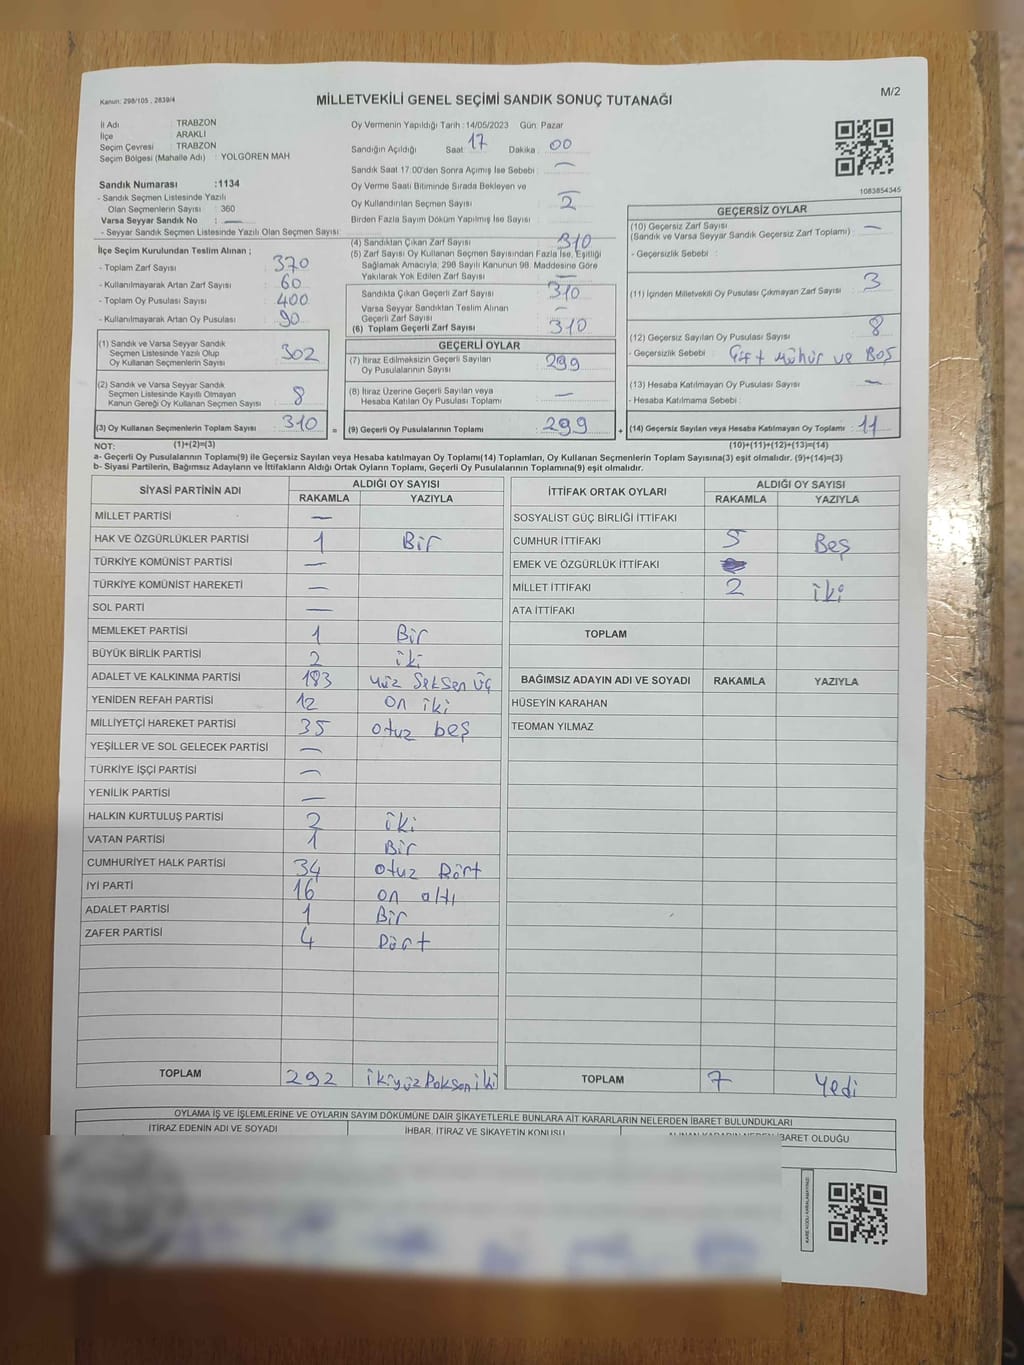 Kanun: 298/105 , 2839/4
MİLLETVEKİLİ GENEL SEÇİMİ SANDIK SONUÇ TUTANAĞI
M/2
İl Adı : TRABZON
İlçe : ARAKLI
Seçim Çevresi : TRABZON
Seçim Bölgesi (Mahalle Adı) : YOLGÖREN MAH
Sandık Numarası :1134
- Sandık Seçmen Listesinde Yazılı
Olan Seçmenlerin Sayısı : 360
Varsa Seyyar Sandık No : —
- Seyyar Sandık Seçmen Listesinde Yazılı Olan Seçmen Sayısı:
Oy Vermenin Yapıldığı Tarih : 14/05/2023 Gün: Pazar
Sandığın Açıldığı Saat : 17 Dakika : 00
Sandık Saat 17:00'den Sonra Açımış İse Sebebi : —
Oy Verme Saati Bitiminde Sırada Bekleyen ve
Oy Kullandırılan Seçmen Sayısı : 2
Birden Fazla Sayım Döküm Yapılmış İse Sayısı :
1083854345
İlçe Seçim Kurulundan Teslim Alınan ;
- Toplam Zarf Sayısı : 370
- Kullanılmayarak Artan Zarf Sayısı : 60
- Toplam Oy Pusulası Sayısı : 400
- Kullanılmayarak Artan Oy Pusulası : 90
(1) Sandık ve Varsa Seyyar Sandık
Seçmen Listesinde Yazılı Olup
Oy Kullanan Seçmenlerin Sayısı : 302
(2) Sandık ve Varsa Seyyar Sandık
Seçmen Listesinde Kayıtlı Olmayan
Kanun Gereği Oy Kullanan Seçmen Sayısı : 8
(3) Oy Kullanan Seçmenlerin Toplam Sayısı : 310
(4) Sandıktan Çıkan Zarf Sayısı : 310
(5) Zarf Sayısı Oy Kullanan Seçmen Sayısından Fazla İse, Eşitliği
Sağlamak Amacıyla, 298 Sayılı Kanunun 98. Maddesine Göre
Yakılarak Yok Edilen Zarf Sayısı : —
Sandıkta Çıkan Geçerli Zarf Sayısı : 310
Varsa Seyyar Sandıktan Teslim Alınan
Geçerli Zarf Sayısı : —
(6) Toplam Geçerli Zarf Sayısı : 310
GEÇERLİ OYLAR
(7) İtiraz Edilmeksizin Geçerli Sayılan
Oy Pusulalarının Sayısı : 299
(8) İtiraz Üzerine Geçerli Sayılan veya
Hesaba Katılan Oy Pusulası Toplamı : —
= (9) Geçerli Oy Pusulalarının Toplamı : 299
GEÇERSİZ OYLAR
(10) Geçersiz Zarf Sayısı : —
(Sandık ve Varsa Seyyar Sandık Geçersiz Zarf Toplamı)
- Geçersizlik Sebebi :
(11) İçinden Milletvekili Oy Pusulası Çıkmayan Zarf Sayısı : 3
(12) Geçersiz Sayılan Oy Pusulası Sayısı : 8
- Geçersizlik Sebebi : Çift mühür ve Boş
(13) Hesaba Katılmayan Oy Pusulası Sayısı : —
- Hesaba Katılmama Sebebi :
+ (14) Geçersiz Sayılan veya Hesaba Katılmayan Oy Toplamı : 11
NOT: (1)+(2)=(3) (10)+(11)+(12)+(13)=(14)
a- Geçerli Oy Pusulalarının Toplamı(9) ile Geçersiz Sayılan veya Hesaba katılmayan Oy Toplamı(14) Toplamları, Oy Kullanan Seçmenlerin Toplam Sayısına(3) eşit olmalıdır. (9)+(14)=(3)
b- Siyasi Partilerin, Bağımsız Adayların ve İttifakların Aldığı Ortak Oyların Toplamı, Geçerli Oy Pusulalarının Toplamına(9) eşit olmalıdır.
SİYASİ PARTİNİN ADI ALDIĞI OY SAYISI
RAKAMLA YAZIYLA
MİLLET PARTİSİ —
HAK VE ÖZGÜRLÜKLER PARTİSİ 1 Bir
TÜRKİYE KOMÜNİST PARTİSİ —
TÜRKİYE KOMÜNİST HAREKETİ —
SOL PARTİ —
MEMLEKET PARTİSİ 1 Bir
BÜYÜK BİRLİK PARTİSİ 2 iki
ADALET VE KALKINMA PARTİSİ 183 yüz Seksen Üç
YENİDEN REFAH PARTİSİ 12 on iki
MİLLİYETÇİ HAREKET PARTİSİ 35 otuz beş
YEŞİLLER VE SOL GELECEK PARTİSİ —
TÜRKİYE İŞÇİ PARTİSİ —
YENİLİK PARTİSİ —
HALKIN KURTULUŞ PARTİSİ 2 iki
VATAN PARTİSİ 1 Bir
CUMHURİYET HALK PARTİSİ 34 otuz Dört
İYİ PARTİ 16 on altı
ADALET PARTİSİ 1 Bir
ZAFER PARTİSİ 4 Dört
TOPLAM 292 ikiyüz Doksan iki
İTTİFAK ORTAK OYLARI ALDIĞI OY SAYISI
RAKAMLA YAZIYLA
SOSYALİST GÜÇ BİRLİĞİ İTTİFAKI
CUMHUR İTTİFAKI 5 Beş
EMEK VE ÖZGÜRLÜK İTTİFAKI
MİLLET İTTİFAKI 2 iki
ATA İTTİFAKI
TOPLAM
BAĞIMSIZ ADAYIN ADI VE SOYADI RAKAMLA YAZIYLA
HÜSEYİN KARAHAN
TEOMAN YILMAZ
TOPLAM 7 Yedi
OYLAMA İŞ VE İŞLEMLERİNE VE OYLARIN SAYIM DÖKÜMÜNE DAİR ŞİKAYETLERLE BUNLARA AİT KARARLARIN NELERDEN İBARET BULUNDUKLARI
İTİRAZ EDENİN ADI VE SOYADI İHBAR, İTİRAZ VE ŞİKAYETİN KONUSU ALINAN KARARIN NEDEN İBARET OLDUĞU
KARE KODU KARALAMAYINIZ!